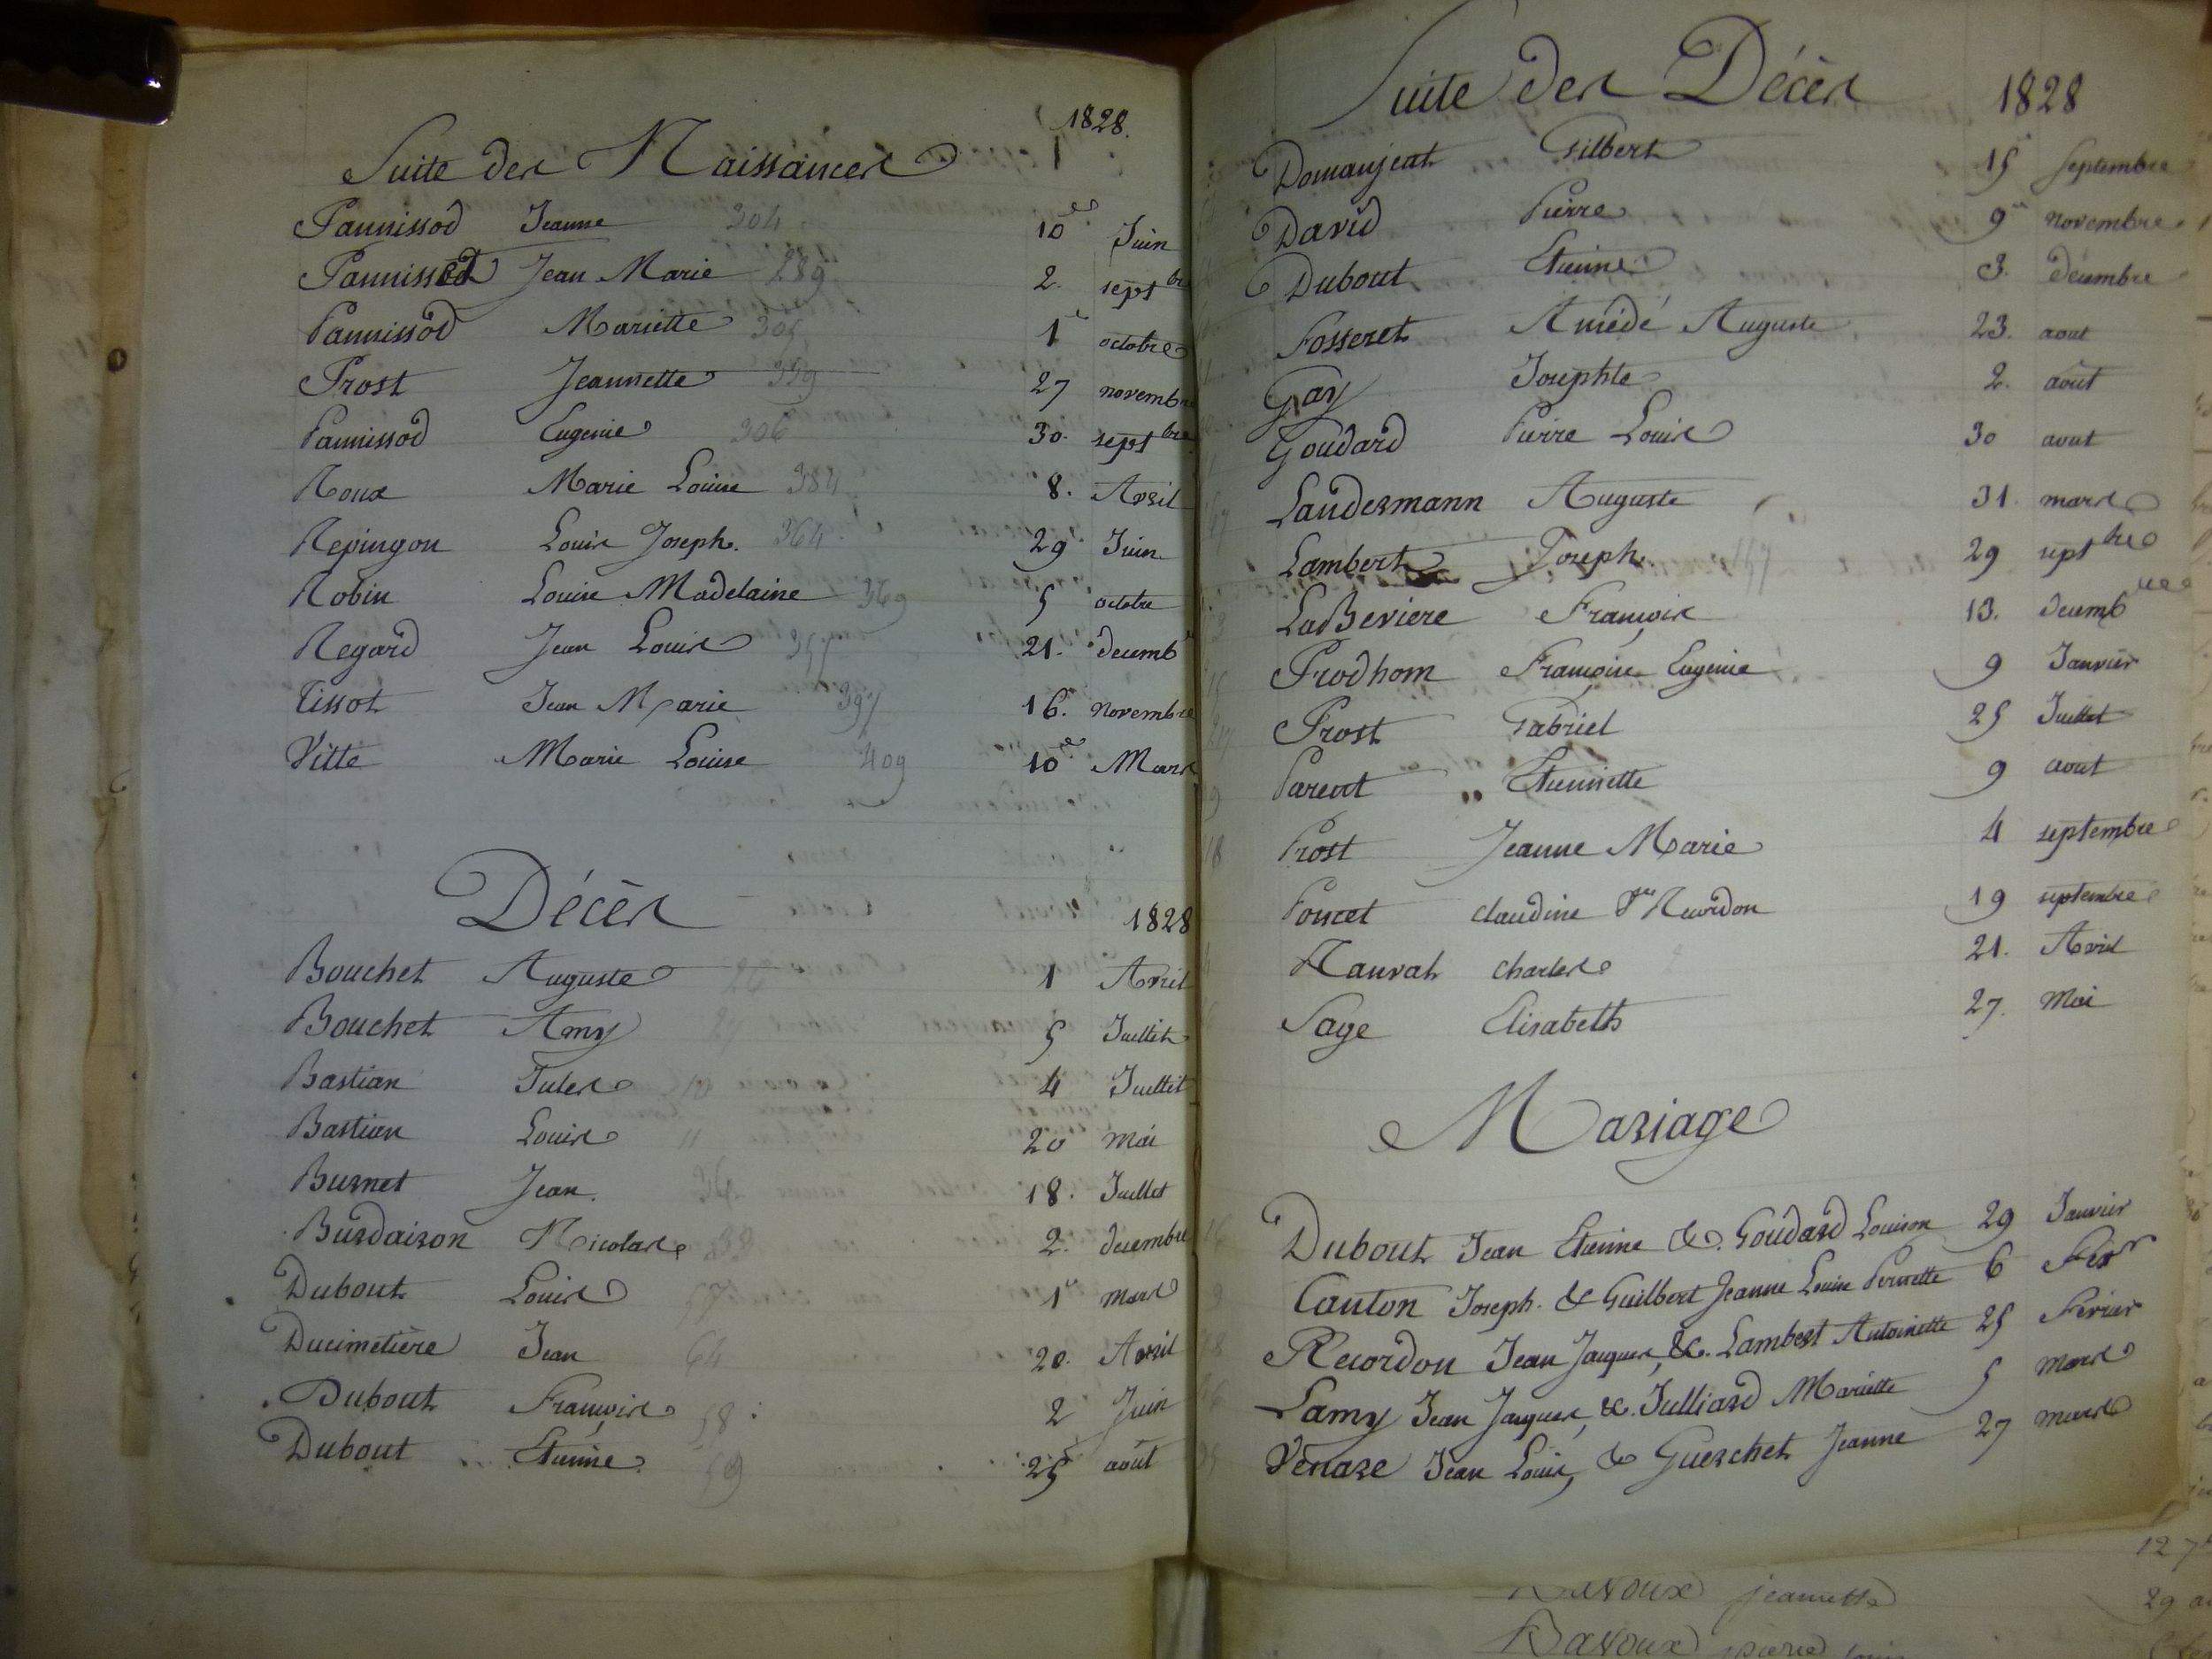 1828.
Suite des Naissances
Pannissod Jeanne 304 10 Juin
Pannissod Jean Marie 289 2. sept bre
Pannissod Mariette 305 1 octobre
Prost Jeannette 359 27 novembre
Pannissod Eugenie 306 30. sept bre
Roux Marie Louise 384 8. Avril
Repingon Louis Joseph. 364 29 Juin
Robin Louise Madelaine 369 5 octobre
Regard Jean Louis 357 21. decemb
Tissot Jean Marie 397 16. novembre
Vitte Marie Louise 409 10 Mars
Décès 1828
Bouchet Auguste 26 1 Avril
Bouchet Amy 5 Juillet
Bastian Jules 10 4 Juillet
Bastian Louis 11 20 mai
Burnet Jean. 18. Juillet
Burdairon Nicolas 2. decembre
Dubout Louis 57 1er mars
Ducimetière Jean 64 20. Avril
Dubout François 58 2 Juin
Dubout Etienne 59 25 août
Suite des Décès 1828
Domanjeat Gilbert 15 Septembre
David Pierre 9 novembre
Dubout Etienne 3. décembre
Fosseret Amédé Auguste 23. aout
Gay Josephte 2. août
Goudard Pierre Louis 30 aout
Laudermann Auguste 31. mars
Lambert Joseph 29 sept bre
LaBeviere François 13. decemb
Prodhom Françoise Eugenie 9 Janvier
Prost Gabriel 25 Juillet
Parent Etiennette 9 aout
Prost Jeanne Marie 4 septembre
Poncet claudine née Recordon 19 septembre
Rauvat charles 21. Avril
Sage Elisabeth 27. Mai
Mariage
Dubout Jean Etienne & Goudard Louison 29 Janvier
Canton Joseph. & Guilbert Jeanne Louise Pernette 6 Fevr
Recordon Jean Jaques, &. Lambert Antoinette 25 Fevrier
Lamy Jean Jaques, &. Julliard Mariette 5 mars
Venare Jean Louis, & Guerchet Jeanne 27 mars
Ravoux jeannette 29
Ravoux pierre louis